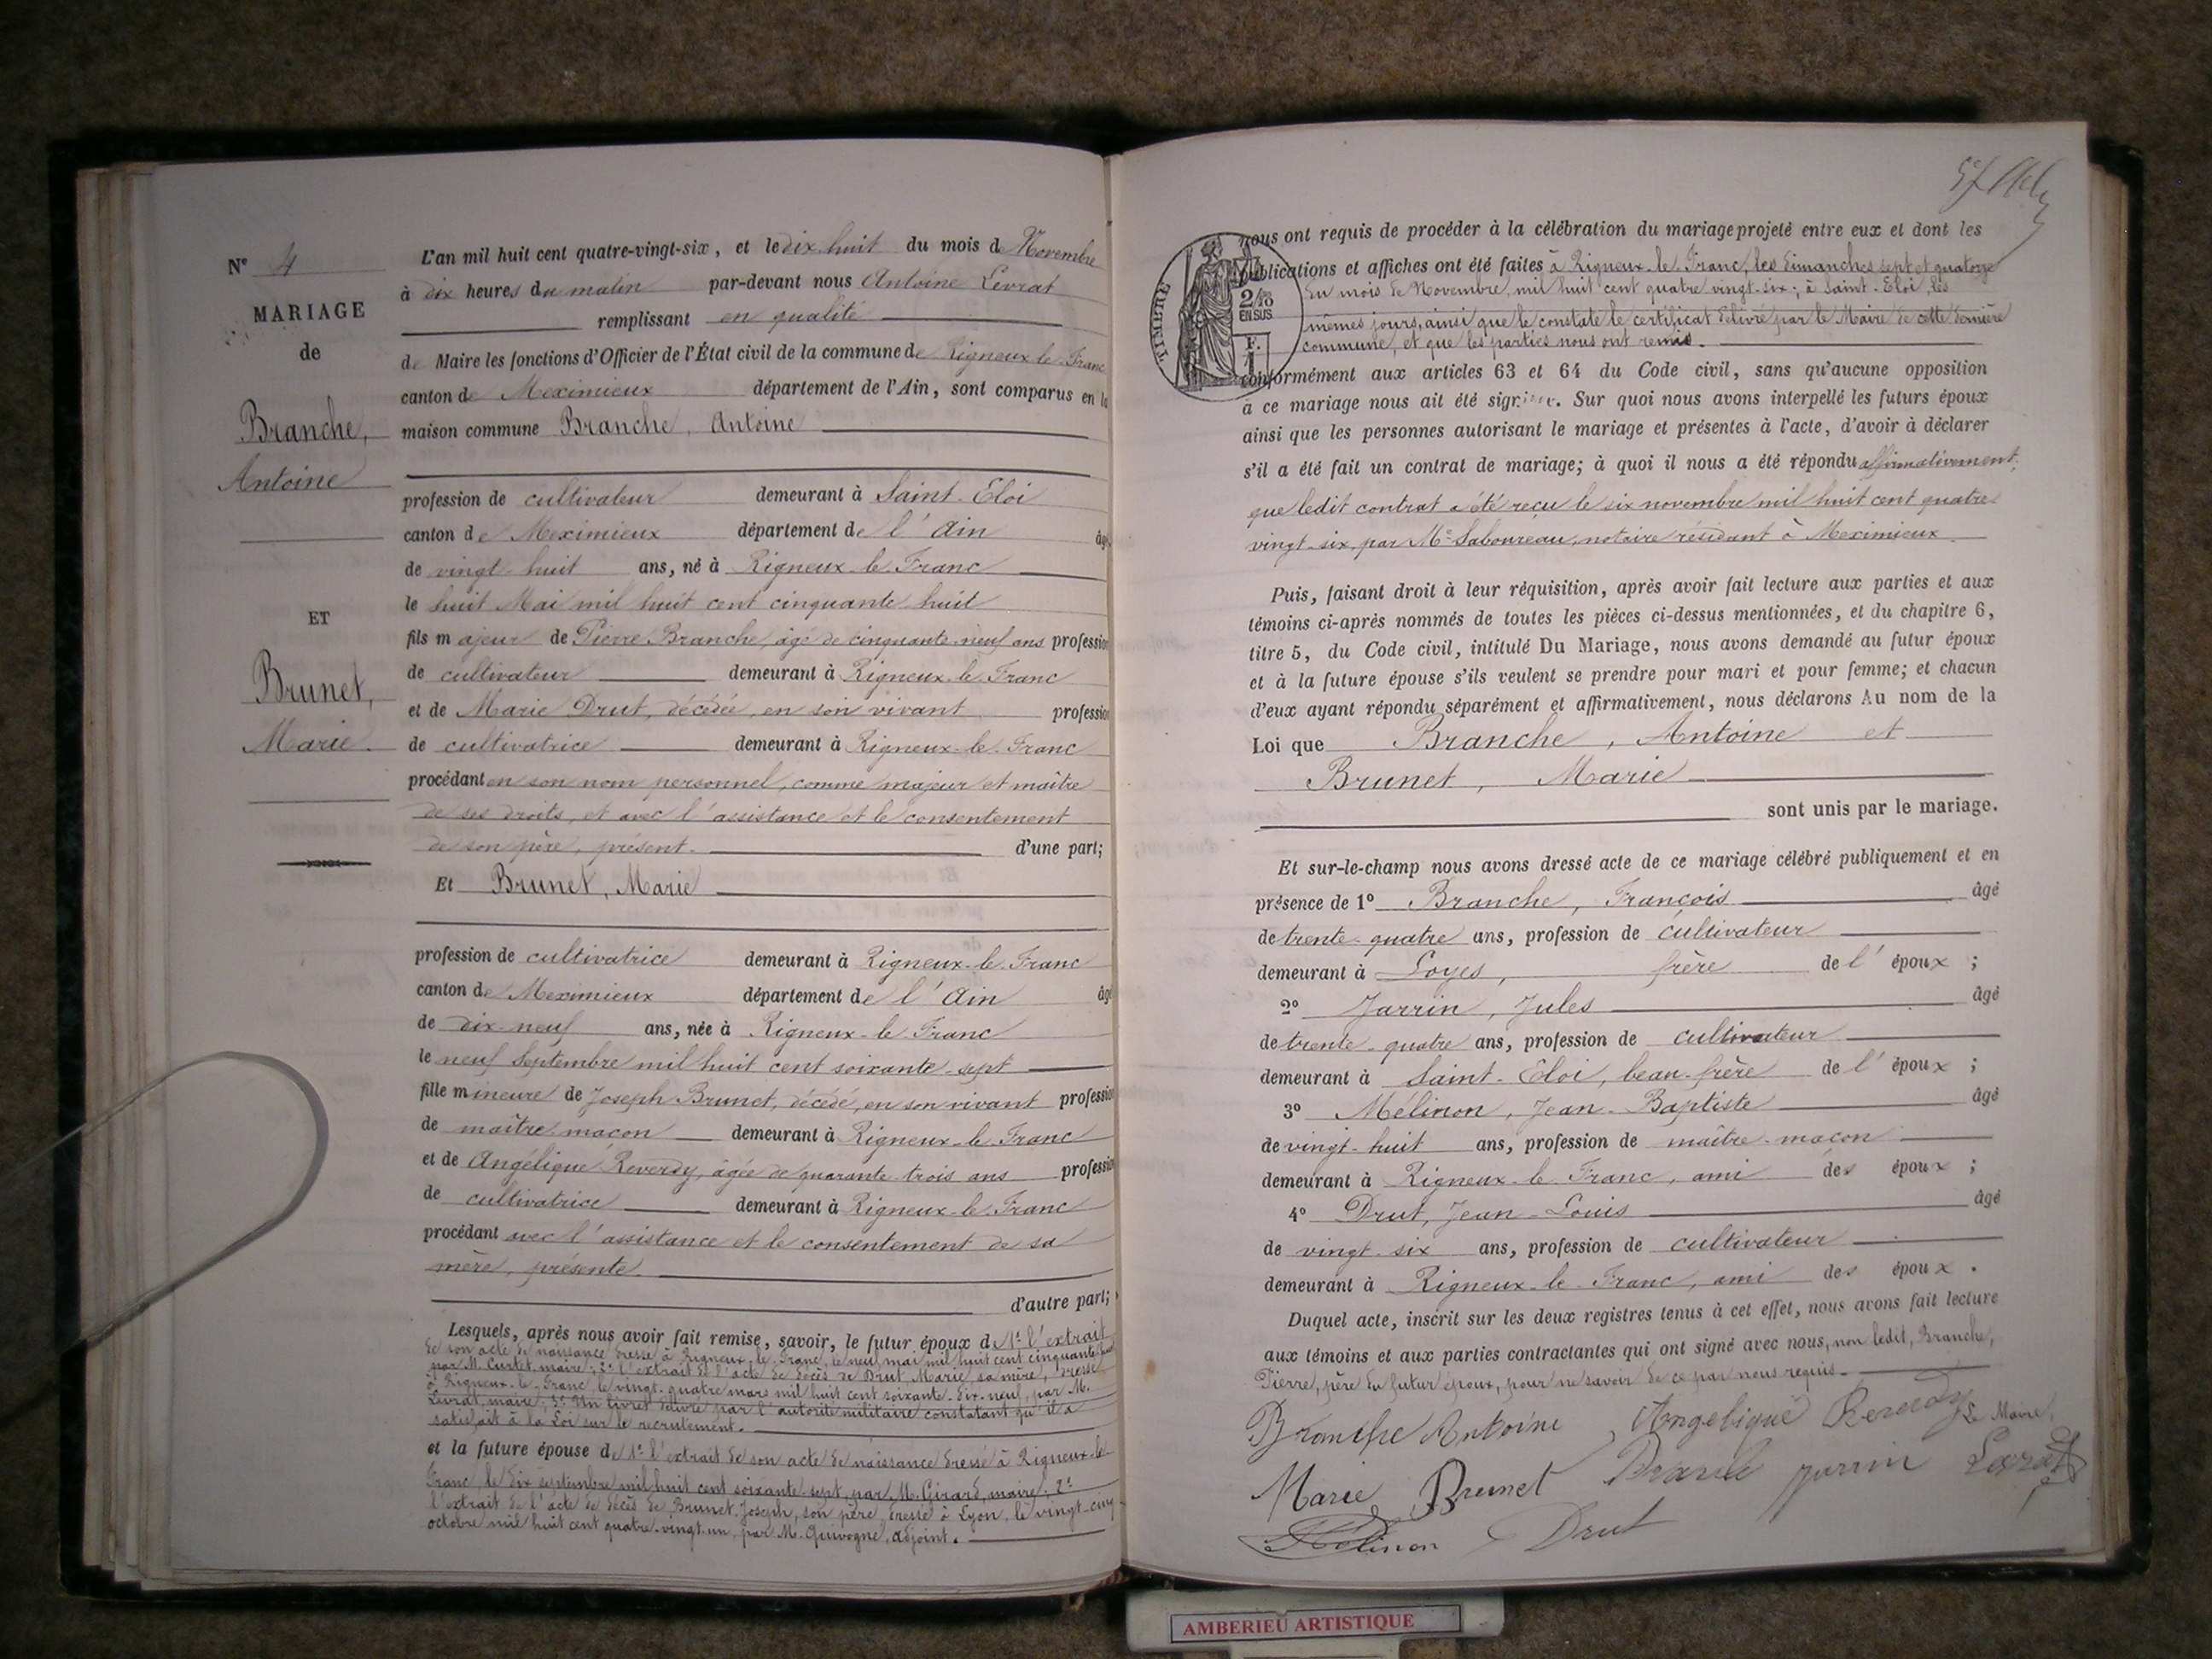 N° 4
MARIAGE
de
Branche,
Antoine
ET
Brunet,
Marie.
L'an mil huit cent quatre-vingt-six, et le dix huit du mois de Novembre
à dix heures du matin par-devant nous Antoine Levrat
remplissant en qualité
de Maire les fonctions d'Officier de l'État civil de la commune de Rigneux-le-Franc
canton de Meximieux département de l'Ain, sont comparus en la
maison commune Branche, Antoine
profession de cultivateur demeurant à Saint-Eloi
canton de Meximieux département de l'Ain âgé
de vingt-huit ans, né à Rigneux-le-Franc
le huit Mai mil huit cent cinquante-huit
fils majeur de Pierre Branche, âgé de cinquante-neuf ans profession
de cultivateur demeurant à Rigneux-le-Franc
et de Marie Drut, décédée, en son vivant profession
de cultivatrice demeurant à Rigneux-le-Franc
procédant en son nom personnel, comme majeur et maître
de ses droits, et avec l'assistance et le consentement
de son père, présent. d'une part;
Et Brunet, Marie
profession de cultivatrice demeurant à Rigneux-le-Franc
canton de Meximieux département de l'Ain âgé
de dix-neuf ans, née à Rigneux-le-Franc
le neuf Septembre mil huit cent soixante-sept
fille mineure de Joseph Brunet, décédé, en son vivant profession
de maître-maçon demeurant à Rigneux-le-Franc
et de Angélique Reverdy, âgée de quarante-trois ans profession
de cultivatrice demeurant à Rigneux-le-Franc
procédant avec l'assistance et le consentement de sa
mère, présente.
d'autre part;
Lesquels, après nous avoir fait remise, savoir, le futur époux de 1° l'extrait
de son acte de naissance dressé à Rigneux-le-Franc, le neuf mai mil huit cent cinquante-huit
par M. Curtet, maire; 2° l'extrait de l'acte de décès de Drut, Marie, sa mère, dressé
à Rigneux-le-Franc, le vingt-quatre mars mil huit cent soixante-dix-neuf, par M.
Levrat, maire; 3° Un livret délivré par l'autorité militaire constatant qu'il a
satisfait à la Loi sur le recrutement.
et la future épouse de 1° l'extrait de son acte de naissance dressé à Rigneux-le-
Franc, le dix septembre mil huit cent soixante-sept, par M. Girard, maire; 2°
l'extrait de l'acte de décès de Brunet Joseph, son père, dressé à Lyon, le vingt-cinq
octobre mil huit cent quatre-vingt-un, par M. Quivogne, adjoint.
TIMBRE
2/10
EN SUS
F.
nous ont requis de procéder à la célébration du mariage projeté entre eux et dont les
publications et affiches ont été faites à Rigneux-le-Franc, les dimanches sept et quatorze
du mois de Novembre, mil huit cent quatre-vingt-six; à Saint-Eloi, les
mêmes jours, ainsi que le constate le certificat délivré par le Maire de cette dernière
commune, et que les parties nous ont remis.
conformément aux articles 63 et 64 du Code civil, sans qu'aucune opposition
à ce mariage nous ait été signifiée. Sur quoi nous avons interpellé les futurs époux
ainsi que les personnes autorisant le mariage et présentes à l'acte, d'avoir à déclarer
s'il a été fait un contrat de mariage; à quoi il nous a été répondu affirmativement,
que ledit contrat a été reçu le six novembre mil huit cent quatre
vingt-six, par Me Saboureau, notaire résidant à Meximieux.
Puis, faisant droit à leur réquisition, après avoir fait lecture aux parties et aux
témoins ci-après nommés de toutes les pièces ci-dessus mentionnées, et du chapitre 6,
titre 5, du Code civil, intitulé Du Mariage, nous avons demandé au futur époux
et à la future épouse s'ils veulent se prendre pour mari et pour femme; et chacun
d'eux ayant répondu séparément et affirmativement, nous déclarons Au nom de la
Loi que Branche, Antoine et
Brunet, Marie
sont unis par le mariage.
Et sur-le-champ nous avons dressé acte de ce mariage célébré publiquement et en
présence de 1° Branche, François âgé
de trente-quatre ans, profession de cultivateur
demeurant à Loyes, frère de l'époux;
2° Jarrin, Jules âgé
de trente-quatre ans, profession de cultivateur
demeurant à Saint-Eloi, beau-frère de l'époux;
3° Mélinon, Jean-Baptiste âgé
de vingt-huit ans, profession de maître-maçon
demeurant à Rigneux-le-Franc, ami des époux;
4° Drut, Jean-Louis âgé
de vingt-six ans, profession de cultivateur
demeurant à Rigneux-le-Franc, ami des époux.
Duquel acte, inscrit sur les deux registres tenus à cet effet, nous avons fait lecture
aux témoins et aux parties contractantes qui ont signé avec nous, non ledit, Branche,
Pierre, père du futur époux, pour ne savoir de ce par nous requis.
Branche Antoine Angelique Reverdy Le Maire,
Marie Brunet Branche Jarrin Levrat
Mélinon Drut
AMBERIEU ARTISTIQUE